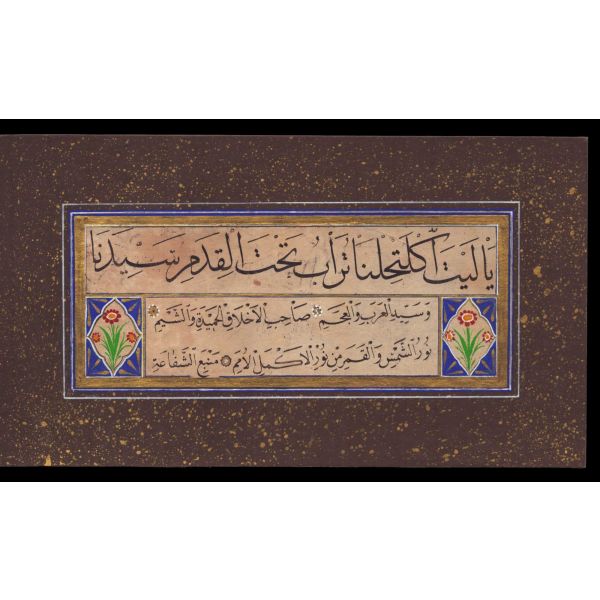 يَا لَيْتَ اكْتَحَلْنَا تُرَابُ تَحْتَ الْقَدَمِ سَيِّدِنَا
وَسَيِّدِ الْعَرَبِ وَالْعَجَمِ صَاحِبِ الْاَخْلَاقِ الْحَمِيدَةِ وَالشِّيَمِ
نُورُ الشَّمْسِ وَالْقَمَرِ مِنْ نُورِ الْاَكْمَلِ الْاُمَمِ مَنْبَعِ الشَّفَاعَةِ